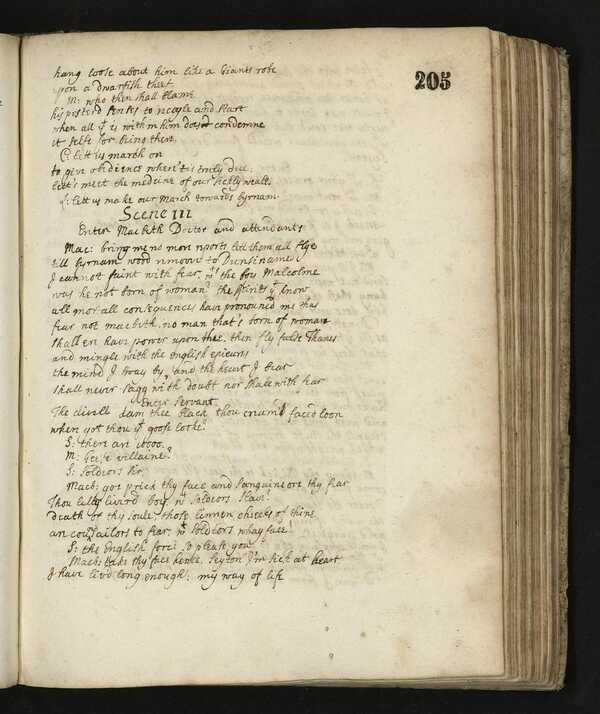 205
hang loose about him like a Giants robe
upon a dwarfish theef
M: who then shall blame
his pesterd senses to recoyle and start
when all yt is within him does condemne
it selfe for being there.
C: lett us march on
to give obedience when't is truly due.
lett's meet the medcine of our sickly weale.
L: lett us make our march towards byrnam
Scene III
Enter Macbeth Doctor and attendants
Mac: bring me no more reports lett them all flye
till byrnam wood remoove to Dunsiname
I cannot faint with fear, wts the boy Malcolme
was he not born of woman? the spirits yt know
all mortall consequences have pronounced me thus
fear not macbeth, no man that's born of woman
shall ere have power upon thee. then fly false Thanes
and mingle with the english epicurs
the mind I sway by, and the heart I bear
shall never sagg with doubt nor shake with fear
Enter Servant
The divell dam thee black thou creamd faced loon
when got thou yt goose looke?
S: there are 10000.
M: Geese villaine?
S: Soldiors Sir.
Macb: goe prick thy face and sanguine ore thy fear
Thou lilly liverd boy, wt soldiors slave?
death of thy soule, those linnen cheeks of thine
are counsailors to fear, wt soldiors whay face?
S: the English force so please you
Macb: take thy face hence. Seyton I'm sick at heart
I have livd long enough; my way of life